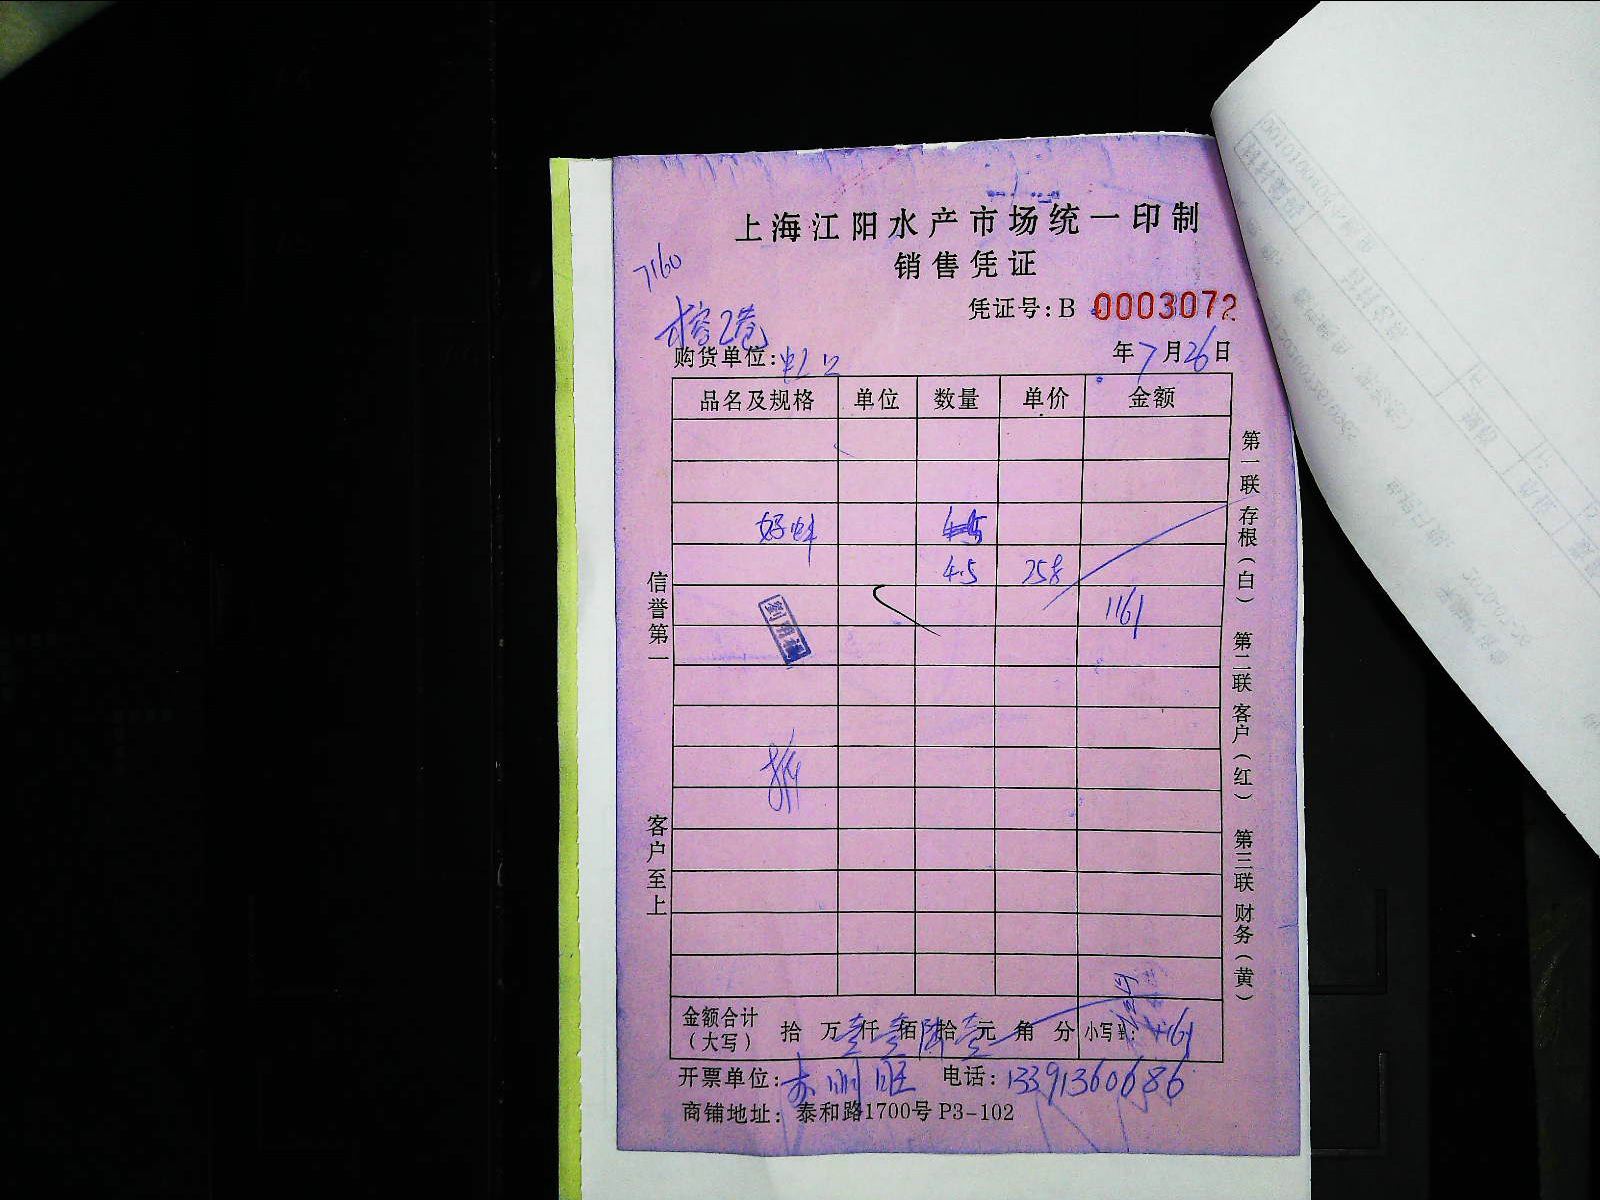 上海江阳水产市场统一印制
销售凭证
7160
凭证号：B 0003072
购货单位：虹口
年7月26日
品名及规格 单位 数量 单价 金额
4.5 258
1161
信誉第一
客户至上
第一联 存根（白） 第二联 客户（红） 第三联 财务（黄）
金额合计（大写） 拾 万壹仟壹佰陆拾壹元 角 分 小写¥: 1161
开票单位： 电话：13391360686
商铺地址：泰和路1700号P3-102